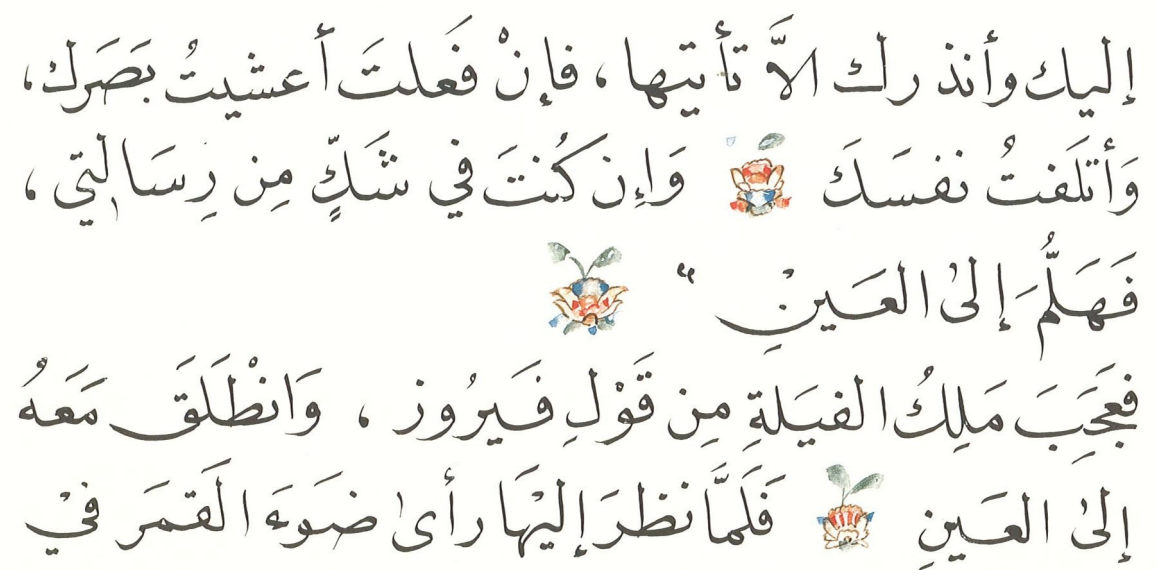 إليك وأنذرك الاَّ تأتيها، فإنْ فَعلتَ أعشيتُ بَصَرك،
وَأتلَفتُ نفسَكَ وَإِن كُنتَ في شَكٍّ مِن رِسَالتي،
فَهَلُمَّ إلىٰ العَينِ "
فَعَجِبَ مَلِكُ الفيَلةِ مِن قَوْلِ فَيرُوز، وَانْطَلَقَ مَعَهُ
إلىٰ العَينِ فَلَمَّا نظرَ إليْهَا رأىٰ ضَوءَ القَمَر فيْ